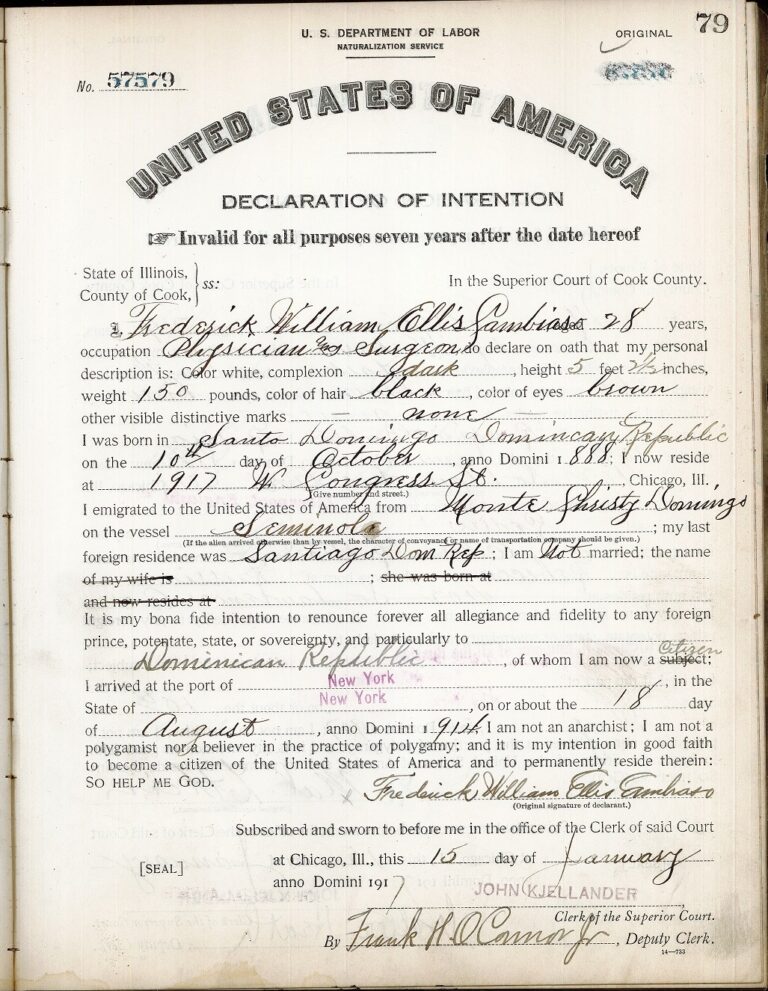 79
U. S. DEPARTMENT OF LABOR
NATURALIZATION SERVICE
ORIGINAL
No. 57579
UNITED STATES OF AMERICA
DECLARATION OF INTENTION
☞ Invalid for all purposes seven years after the date hereof
State of Illinois,
County of Cook, } ss:
In the Superior Court of Cook County.
I, Frederick William Ellis Cambiaso aged 28 years,
occupation Physician and Surgeon, do declare on oath that my personal
description is: Color white, complexion dark, height 5 feet 2½ inches,
weight 150 pounds, color of hair black, color of eyes brown
other visible distinctive marks — none —
I was born in Santo Domingo Dominican Republic
on the 10th day of October, anno Domini 1888; I now reside
at 1917 W. Congress St., Chicago, Ill.
(Give number and street.)
I emigrated to the United States of America from Monte Christy Domingo
on the vessel Seminole; my last
(If the alien arrived otherwise than by vessel, the character of conveyance or name of transportation company should be given.)
foreign residence was Santiago Dom Rep; I am Not married; the name
of my wife is ; she was born at
and now resides at
It is my bona fide intention to renounce forever all allegiance and fidelity to any foreign
prince, potentate, state, or sovereignty, and particularly to
Dominican Republic, of whom I am now a subject; citizen
I arrived at the port of New York, in the
State of New York, on or about the 18 day
of August, anno Domini 1914 I am not an anarchist; I am not a
polygamist nor a believer in the practice of polygamy; and it is my intention in good faith
to become a citizen of the United States of America and to permanently reside therein:
SO HELP ME GOD.
x Frederick William Ellis Cambiaso
(Original signature of declarant.)
Subscribed and sworn to before me in the office of the Clerk of said Court
[SEAL]
at Chicago, Ill., this 15 day of January
anno Domini 1917
JOHN KJELLANDER
Clerk of the Superior Court.
By Frank H. O'Connor Jr, Deputy Clerk.
14—733